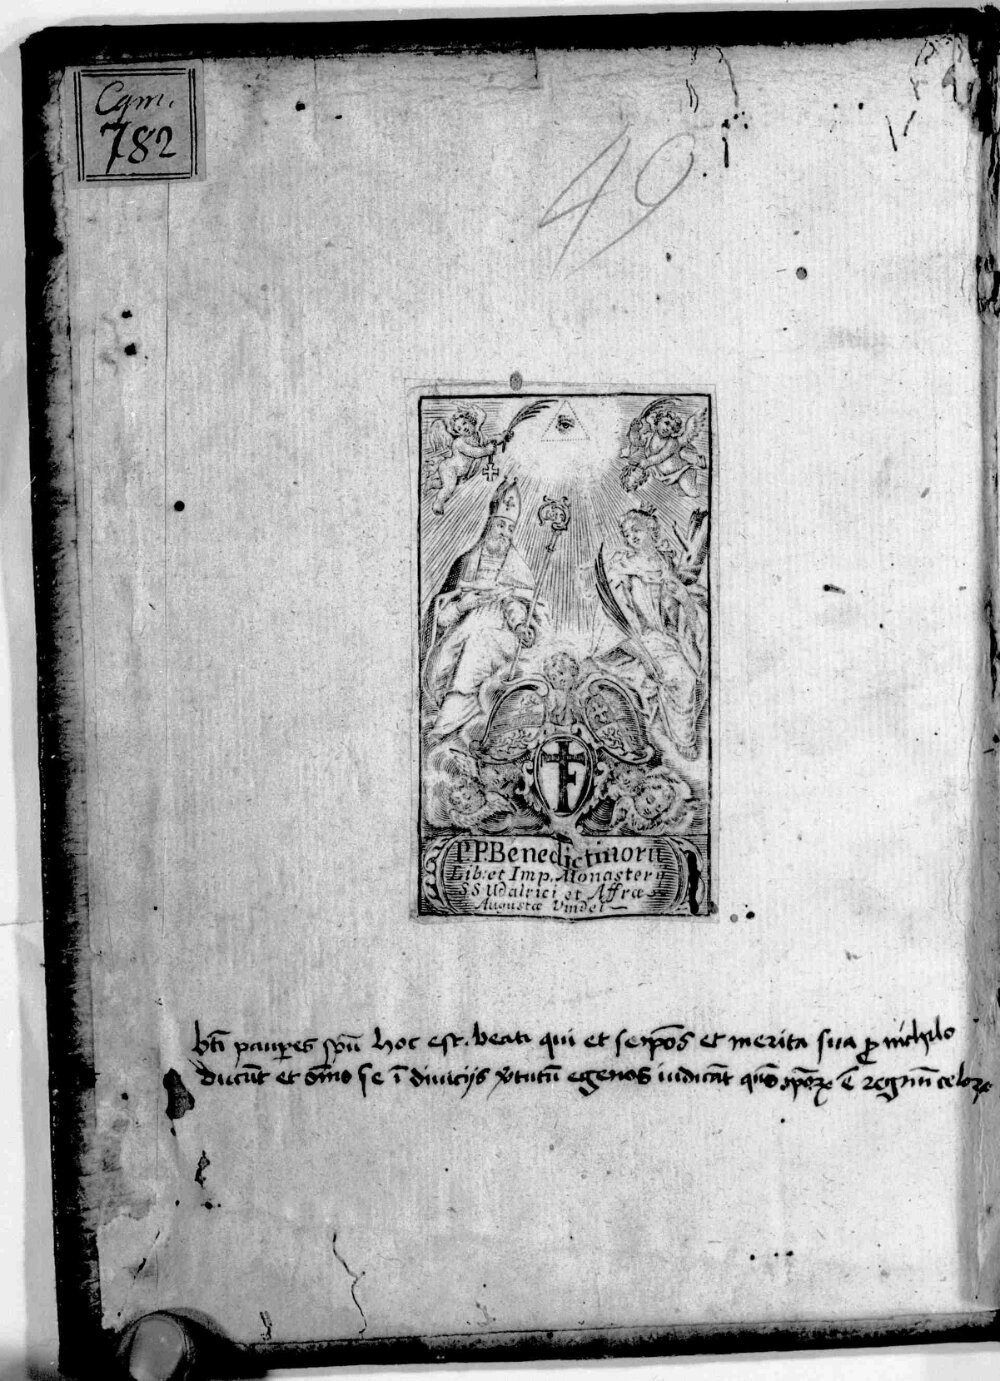 Cgm.
782
49
F
P.P. Benedictinorū
Lib: et Imp. Monasterij
SS Udalrici et Affræ
Augustæ Vindel
bt̄i paup̄es sp̄ū hoc est. beati qui et seip̄os et merita sua ꝓ nichilo
ducūt et om̄o se ī diuicijs v̄tutū egenos iudicāt qm̄ ip̄oꝝ ē regnū celoꝝ